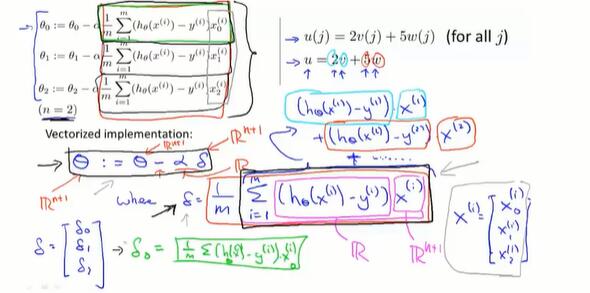 θ₀ := θ₀ - α 1/m Σᵢ₌₁ᵐ (hθ(x⁽ⁱ⁾) - y⁽ⁱ⁾) x₀⁽ⁱ⁾
θ₁ := θ₁ - α 1/m Σᵢ₌₁ᵐ (hθ(x⁽ⁱ⁾) - y⁽ⁱ⁾) x₁⁽ⁱ⁾
θ₂ := θ₂ - α 1/m Σᵢ₌₁ᵐ (hθ(x⁽ⁱ⁾) - y⁽ⁱ⁾) x₂⁽ⁱ⁾
(n = 2)
→ u(j) = 2v(j) + 5w(j) (for all j)
→ u = 2v + 5w
(hθ(x⁽¹⁾) - y⁽¹⁾) · x⁽¹⁾
+ (hθ(x⁽²⁾) - y⁽²⁾) x⁽²⁾
+ ......
Vectorized implementation:
ℝⁿ⁺¹ ℝⁿ⁺¹
→ θ := θ - α δ
ℝⁿ⁺¹ ℝ
where → δ = 1/m Σᵢ₌₁ᵐ (hθ(x⁽ⁱ⁾) - y⁽ⁱ⁾) x⁽ⁱ⁾
ℝ ℝⁿ⁺¹
x⁽ⁱ⁾ = [x₀⁽ⁱ⁾ x₁⁽ⁱ⁾ x₂⁽ⁱ⁾]
δ = [δ₀ δ₁ δ₂] → δ₀ = 1/m Σ (hθ(x⁽ⁱ⁾) - y⁽ⁱ⁾) · x₀⁽ⁱ⁾